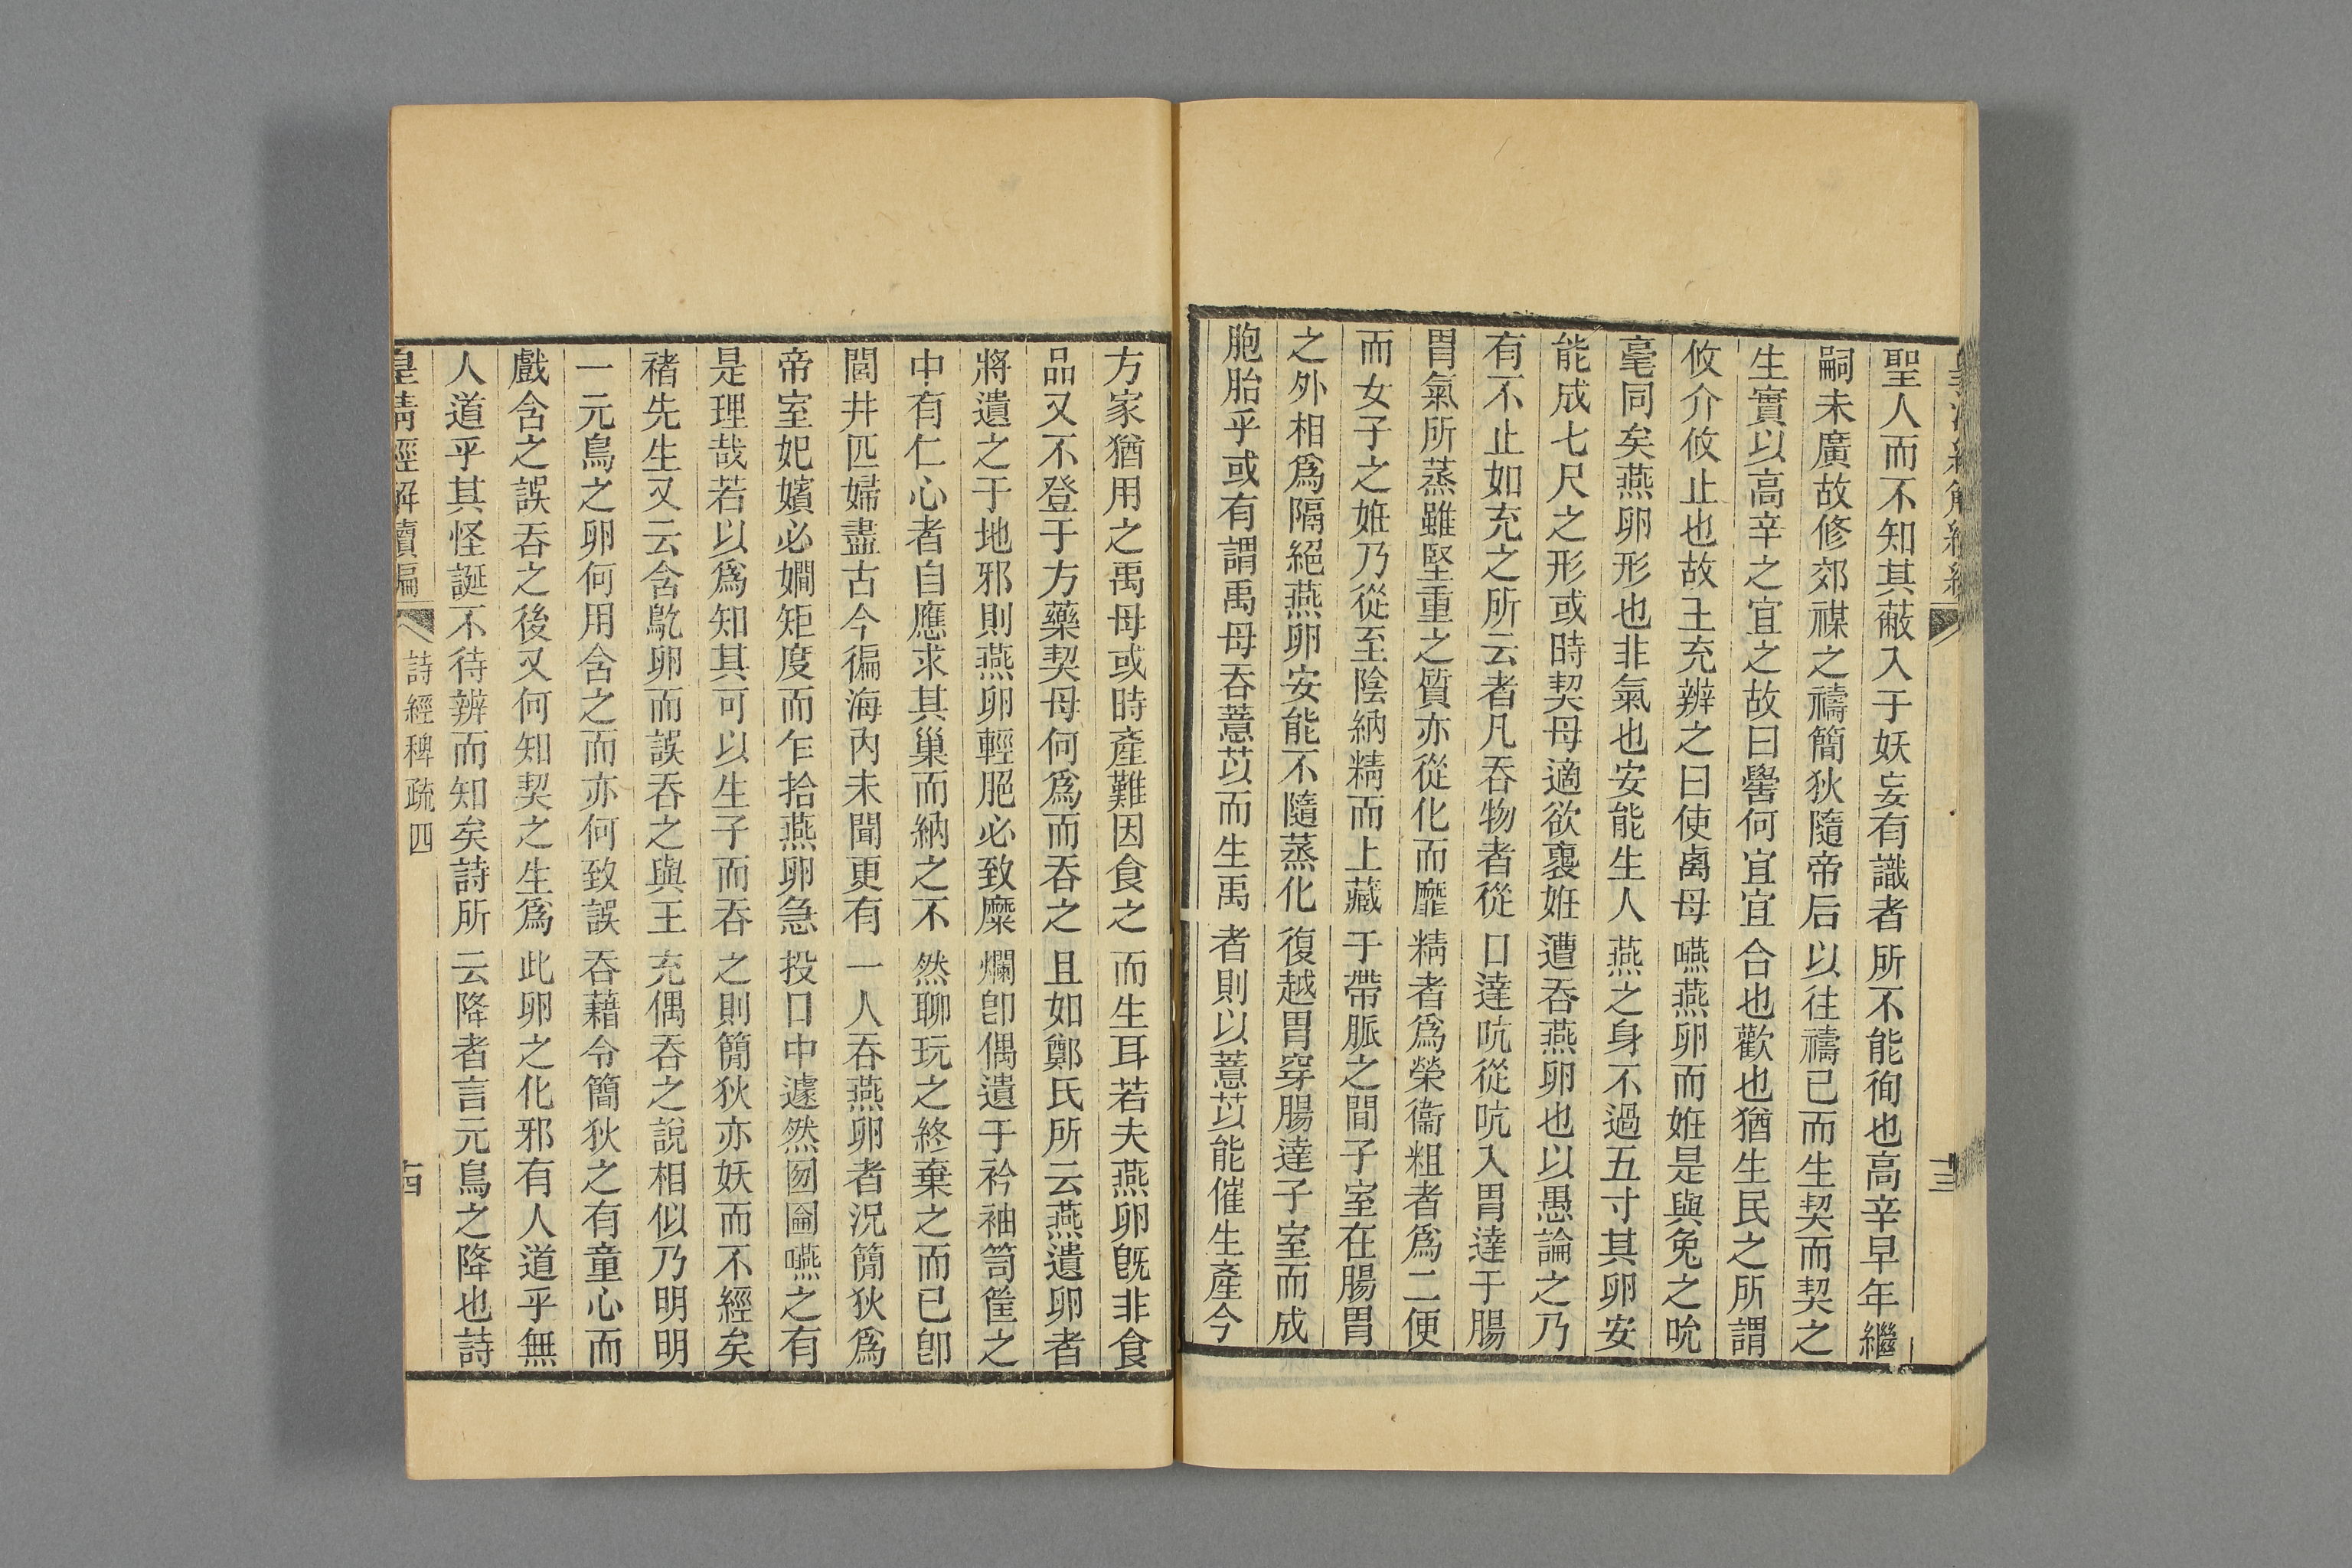 聖人而不知其蔽入于妖妄有識者所不能徇也高辛早年繼
嗣未廣故修郊禖之禱簡狄隨帝后以往禱已而生契而契之
生實以高辛之宜之故曰嚳何宜宜合也歡也猶生民之所謂
攸介攸止也故王充辨之曰使卨母嚥燕卵而姙是與兔之吮
毫同矣燕卵形也非氣也安能生人燕之身不過五寸其卵安
能成七尺之形或時契母適欲褱姙遭吞燕卵也以愚論之乃
有不止如充之所云者凡吞物者從口達吭從吭入胃達于腸
胃氣所蒸雖堅重之質亦從化而靡精者爲榮衞粗者爲二便
而女子之姙乃從至陰納精而上藏于帶脈之閒子室在腸胃
之外相爲隔絕燕卵安能不隨蒸化復越胃穿腸達子室而成
胞胎乎或有謂禹母吞薏苡而生禹者則以薏苡能催生產今
方家猶用之禹母或時產難因食之而生耳若夫燕卵旣非食
品又不登于方藥契母何爲而吞之且如鄭氏所云燕遺卵者
將遺之于地邪則燕卵輕脆必致糜爛卽偶遺于衿袖笥筐之
中有仁心者自應求其巢而納之不然聊玩之終棄之而已卽
閭井匹婦盡古今徧海內未聞更有一人吞燕卵者況簡狄爲
帝室妃嬪必嫺矩度而乍拾燕卵急投口中遽然囫圇嚥之有
是理哉若以爲知其可以生子而吞之則簡狄亦妖而不經矣
褚先生又云含鳦卵而誤吞之與王充偶吞之說相似乃明明
一元鳥之卵何用含之而亦何致誤吞藉令簡狄之有童心而
戲含之誤吞之後又何知契之生爲此卵之化邪有人道乎無
人道乎其怪誕不待辨而知矣詩所云降者言元鳥之降也詩
皇清經解續編 詩經稗疏四 十四